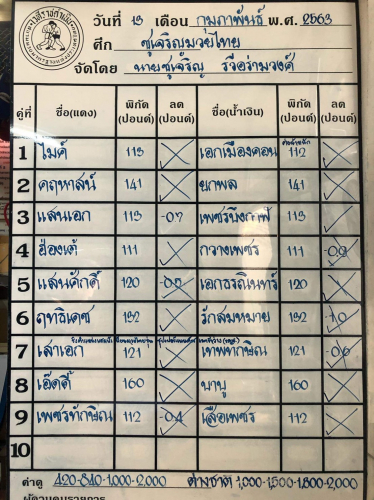 วันที่ 13 เดือน กุมภาพันธ์ พ.ศ. 2563
ศึก ชูเจริญมวยไทย
จัดโดย นายชูเจริญ รวีอร่ามวงค์
คู่ที่ ชื่อ(แดง) พิกัด (ปอนด์) ลด (ปอนด์) ชื่อ(น้ำเงิน) พิกัด (ปอนด์) ลด (ปอนด์)
1 ไมค์ 113 เอกเมืองคอน 112
2 คฤหาสน์ 141 ยกพล 141
3 แสนเอก 113 -0.7 เพชรบึงกาฬ 113
4 ฮ่องเต้ 111 กวางเพชร 111
5 แสนศักดิ์ 120 เอกธรณินทร์ 120
6 ฤทธิเดช 132 รักสมหมาย 132 -1.0
7 เสาเอก 121 เทพทักษิณ 121 -0.6
8 เอ๊ดดี้ 160 นาบู 160
9 เพชรทักษิณ 112 -0.4 เสือเพชร 112
10
ค่าดู 420-840-1,000-2,000 ต่างชาติ 1,000-1,500-1,800-2,000